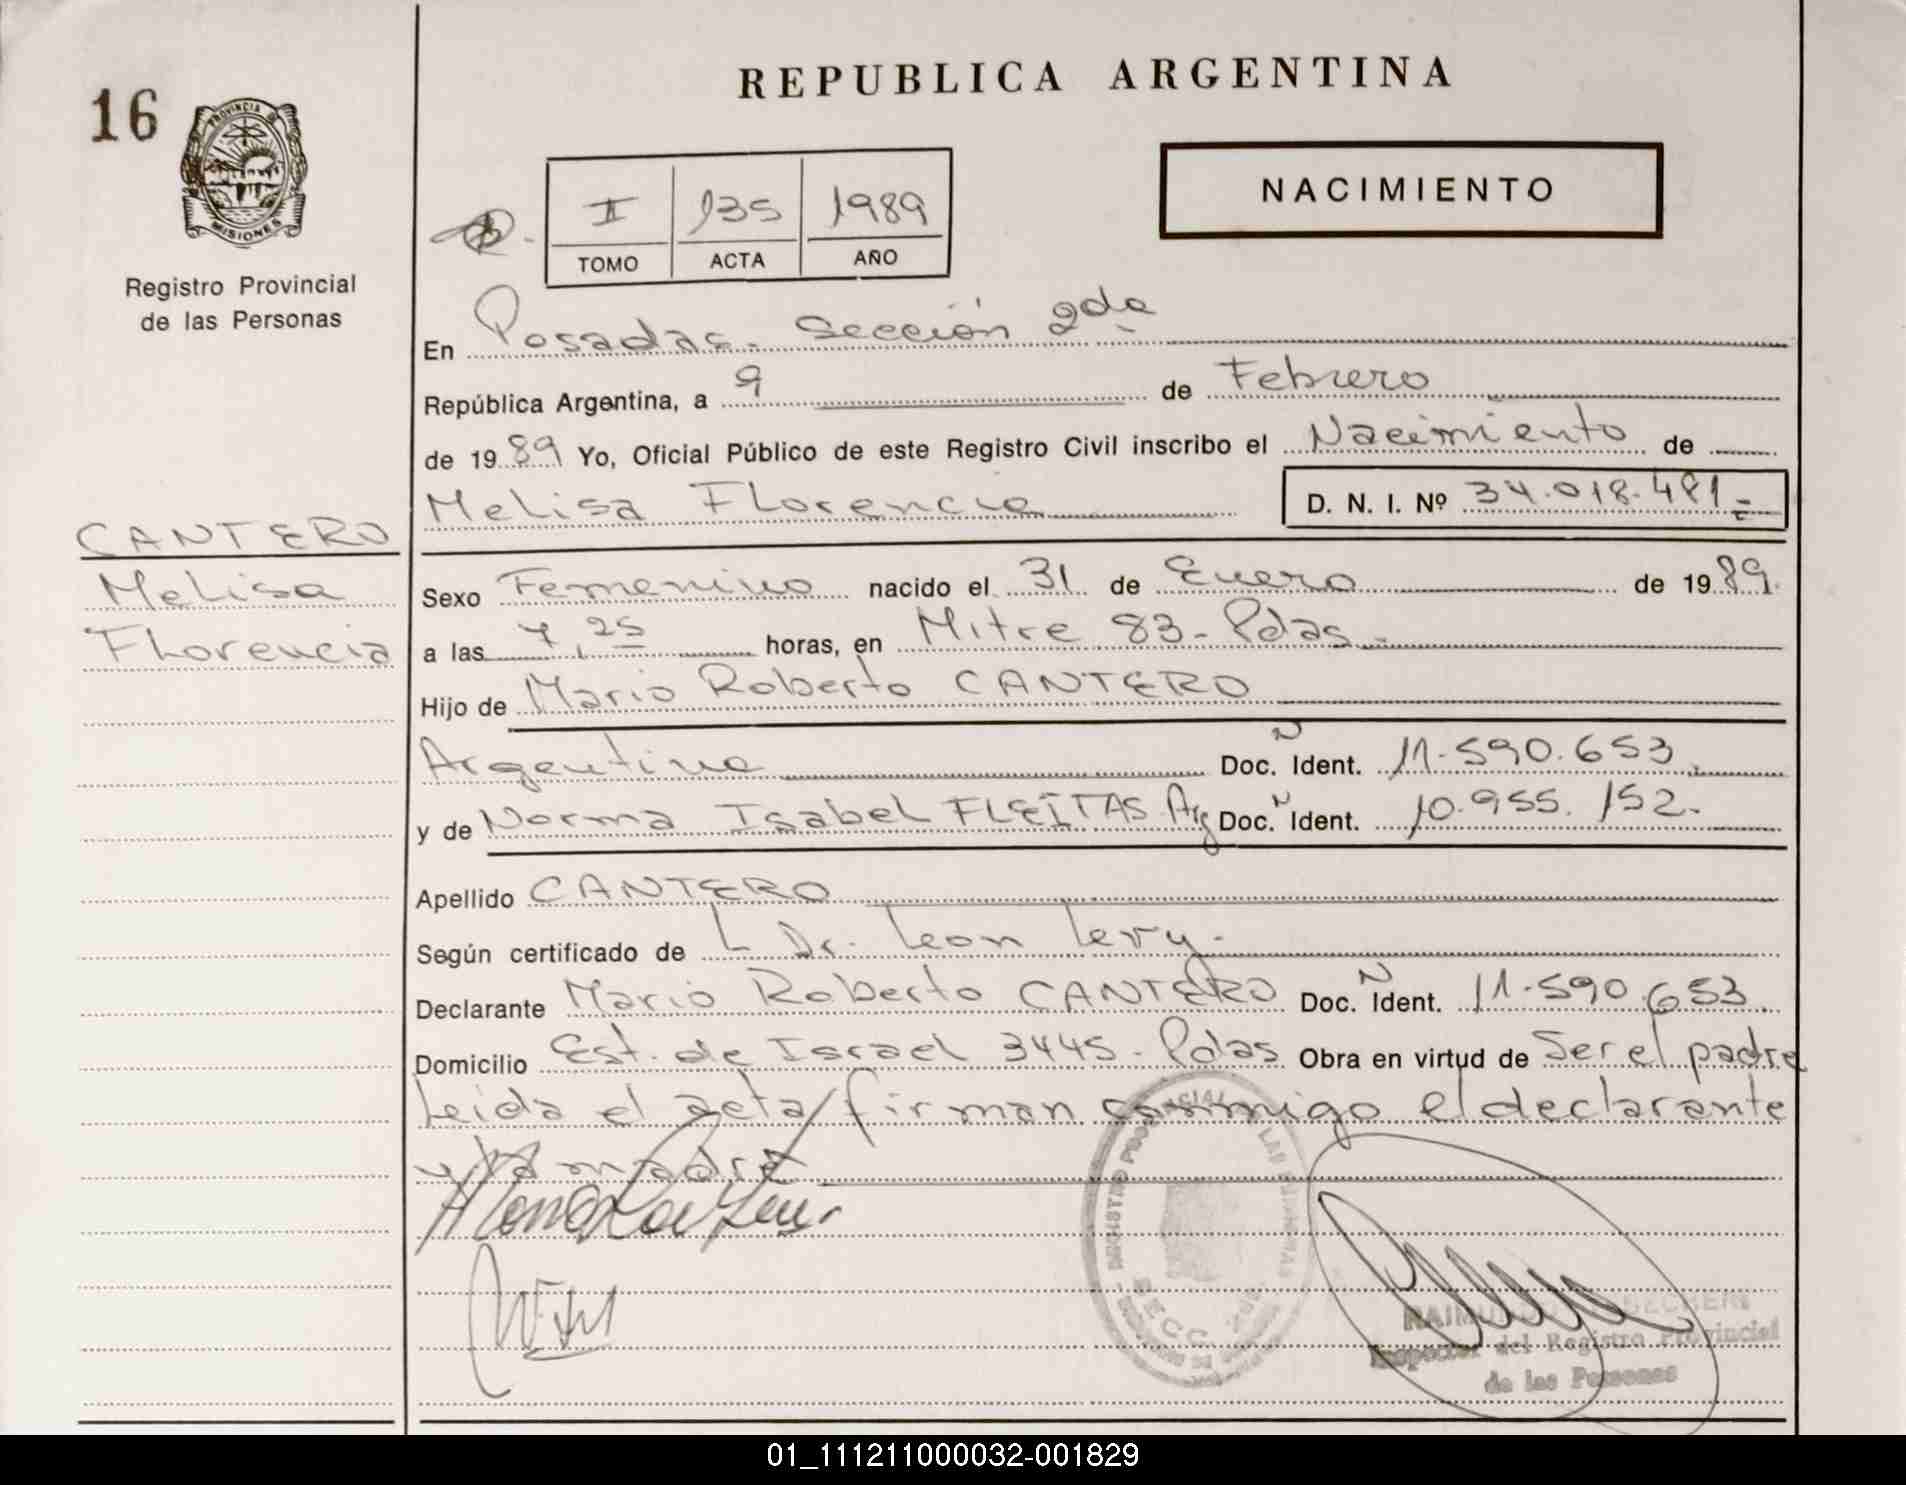 REPUBLICA ARGENTINA
16
PROVINCIA
MISIONES
Registro Provincial
de las Personas
NACIMIENTO
II 135 1989
TOMO ACTA AÑO
En Posadas. Sección 2da
República Argentina, a 9 de Febrero
de 1989 Yo, Oficial Público de este Registro Civil inscribo el Nacimiento de
Melisa Florencia D. N. I. Nº 34.018.481
CANTERO
Melisa
Florencia
Sexo Femenino nacido el 31 de Enero de 1989.
a las 7,25 horas, en Mitre 83 - Pdas.
Hijo de Mario Roberto CANTERO
Argentino Doc. N Ident. 11.590.653
y de Norma Isabel FLEITAS Arg Doc. N Ident. 10.955.152.
Apellido CANTERO
Según certificado de L Dr. Leon Levy.
Declarante Mario Roberto CANTERO Doc. N Ident. 11.590.653.
Domicilio Est. de Israel 3445 - Pdas Obra en virtud de Ser el padre
Leida el acta firman conmigo el declarante
y la madre
Inspector del Registro Provincial
de las Personas
01_111211000032-001829